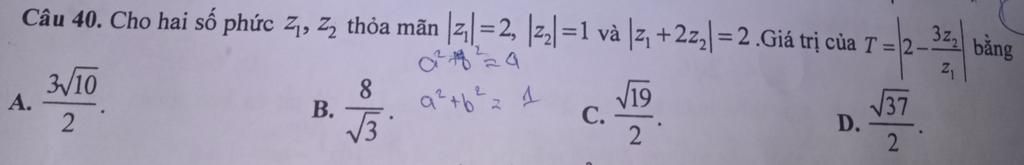 Câu 40. Cho hai số phức z₁, z₂ thỏa mãn |z₁|=2, |z₂|=1 và |z₁+2z₂|=2.Giá trị của T=|2-3z₂/z₁| bằng
a²+b²=4
A. 3√10/2. B. 8/√3. a²+b²=1 C. √19/2. D. √37/2.